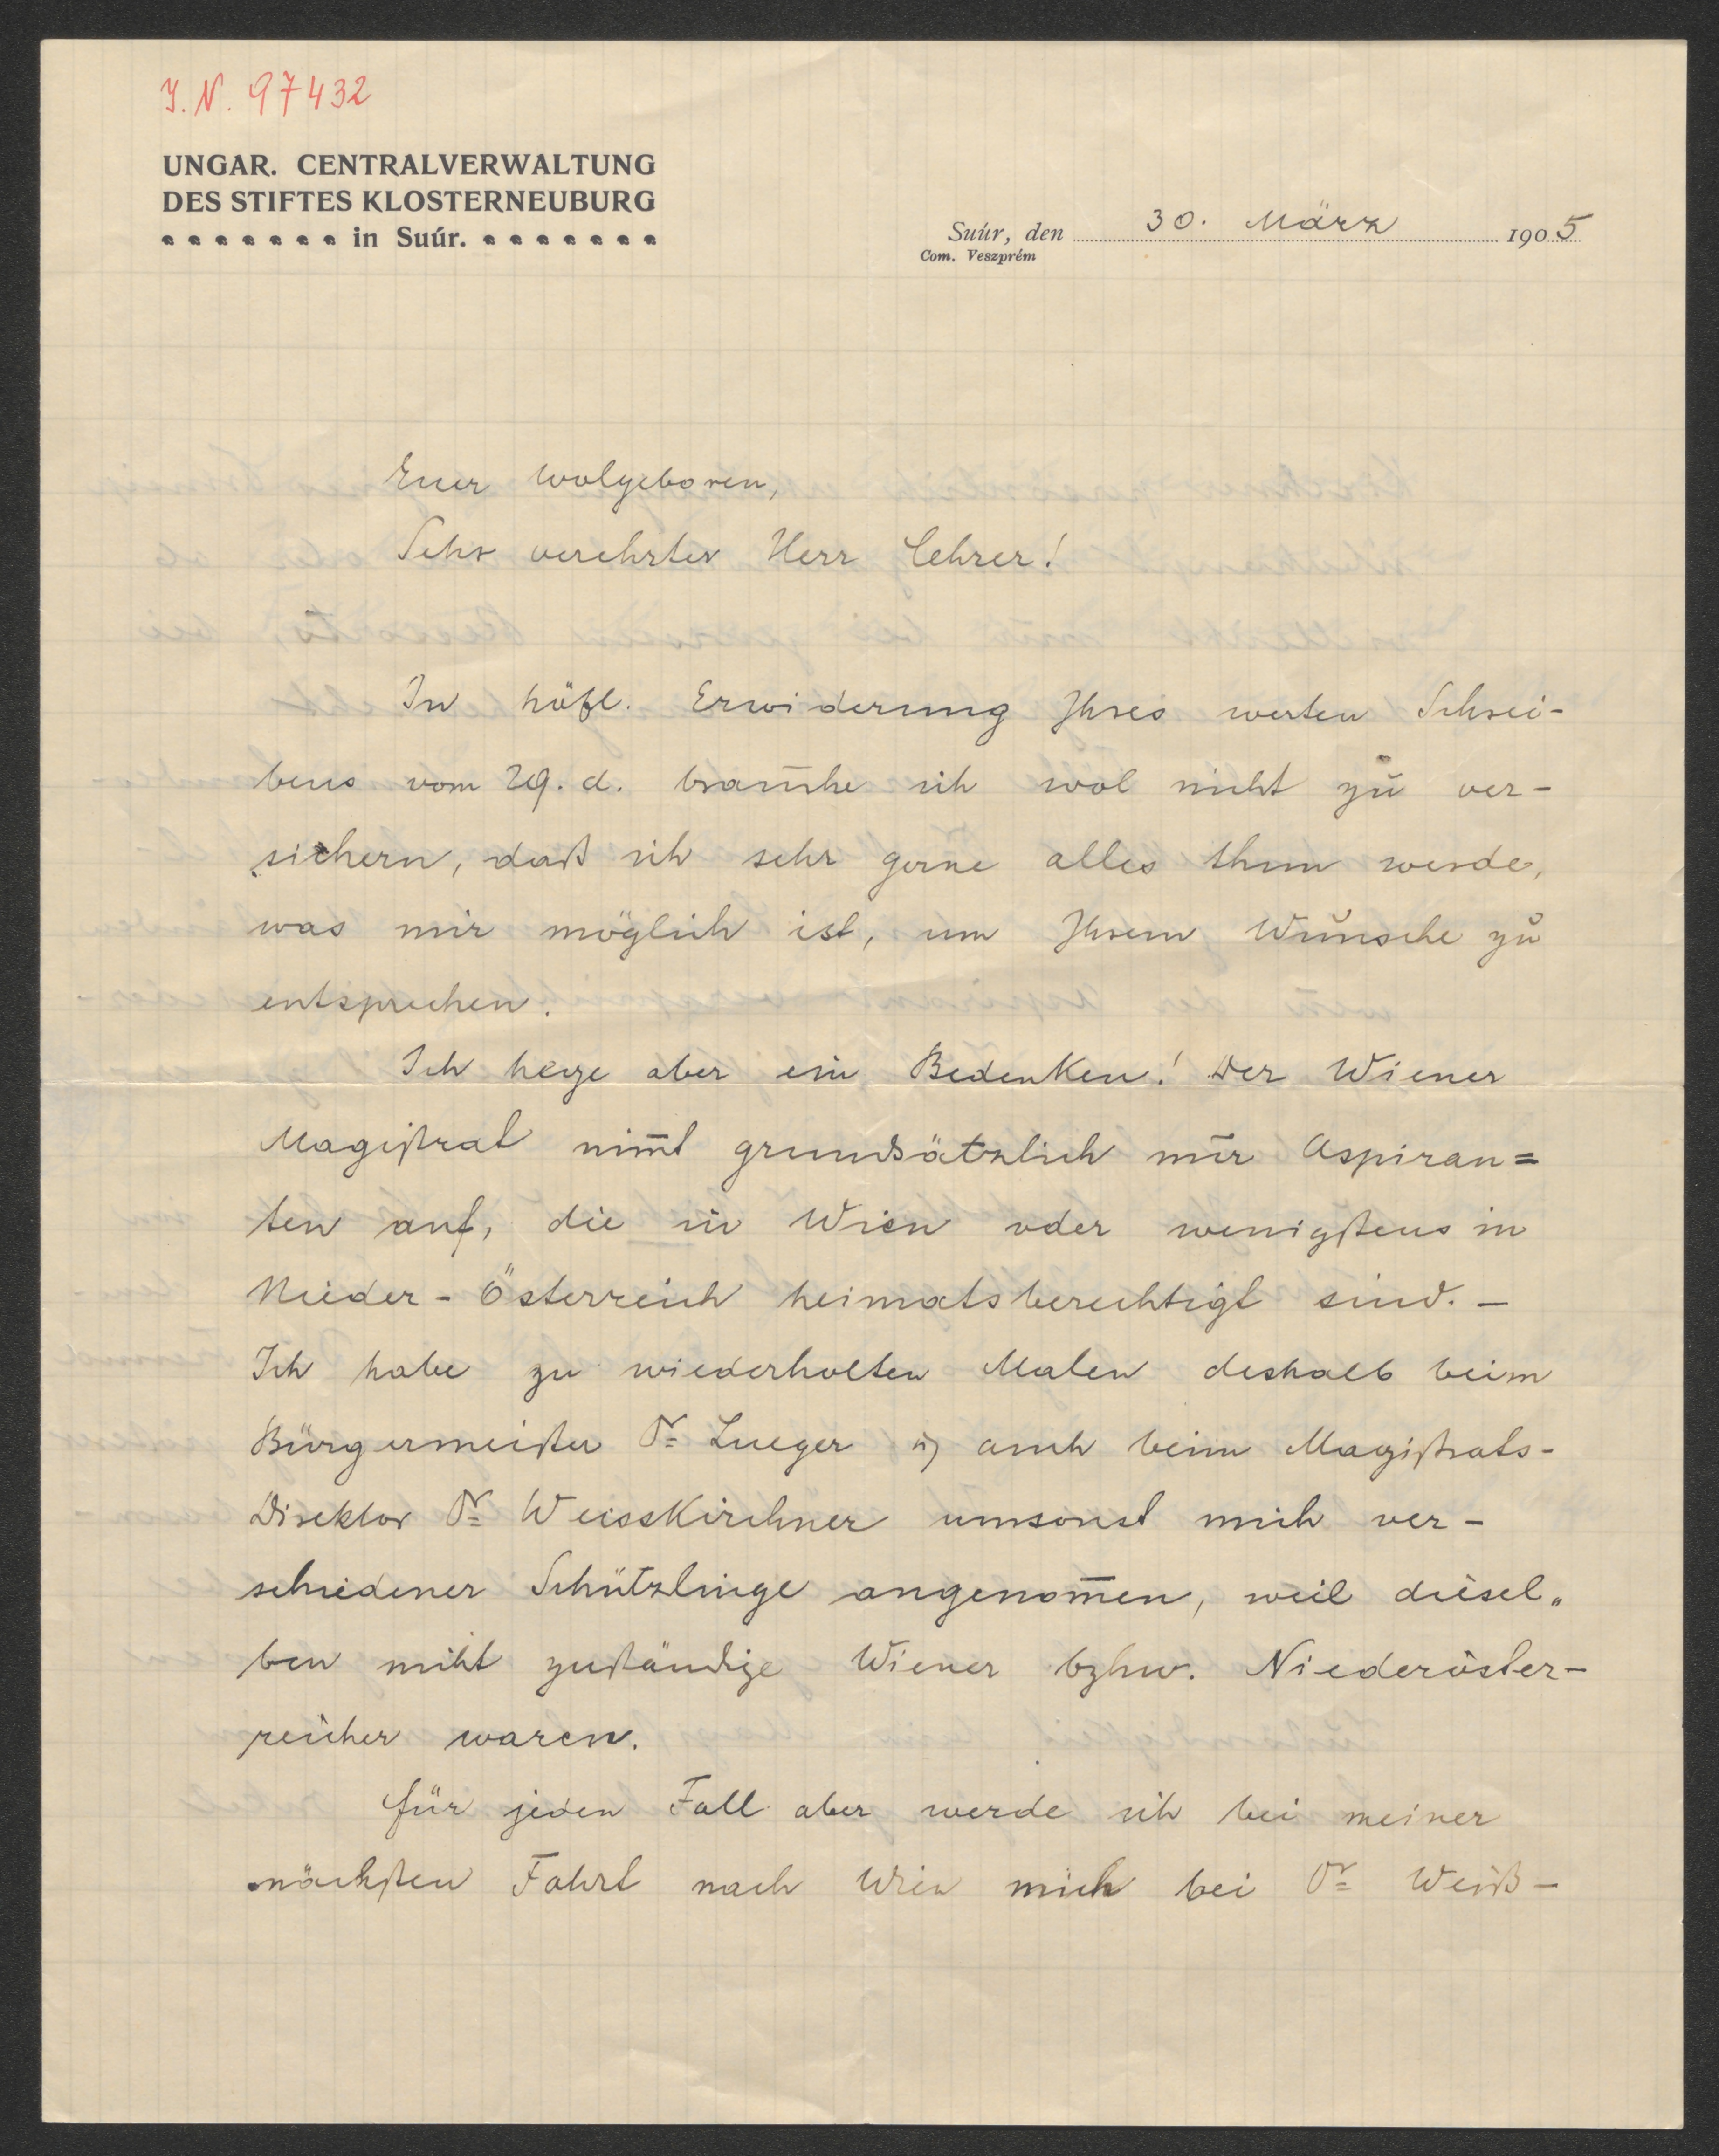 J. N. 97432
UNGAR. CENTRALVERWALTUNG
DES STIFTES KLOSTERNEUBURG
in Suúr.
Suúr, den 30. März 1905
Com. Veszprém
Euer Wolgeboren,
Sehr verehrter Herr Lehrer!
In höfl. Erwiderung Ihres werten Schrei-
bens vom 29. d. brauche ich wol nicht zu ver-
sichern, daß ich sehr gerne alles thun werde,
was mir möglich ist, um Ihrem Wunsche zu
entsprechen.
Ich hege aber ein Bedenken! Der Wiener
Magistrat nim̅t grundsätzlich nur Aspiran=
ten auf, die in Wien oder wenigstens in
Nieder-Österreich heimatsberechtigt sind. –
Ich habe zu wiederholten Malen deshalb beim
Bürgermeister Dr. Lueger u. auch beim Magistrats-
Direktor Dr. Weisskirchner umsonst mich ver-
schiedener Schützlinge angenom̅en, weil diesel„
ben nicht zuständige Wiener bzhw. Niederöster-
reicher waren.
Für jeden Fall aber werde ich bei meiner
nächsten Fahrt nach Wien mich bei Dr. Weiß-